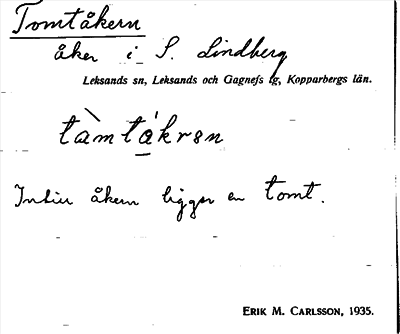 Tomtåkern
åker i S. Lindberg
Leksands sn, Leksands och Gagnefs tg, Kopparbergs län.
tàmtákrən
Intill åkern ligger en tomt.
ERIK M. CARLSSON, 1935.